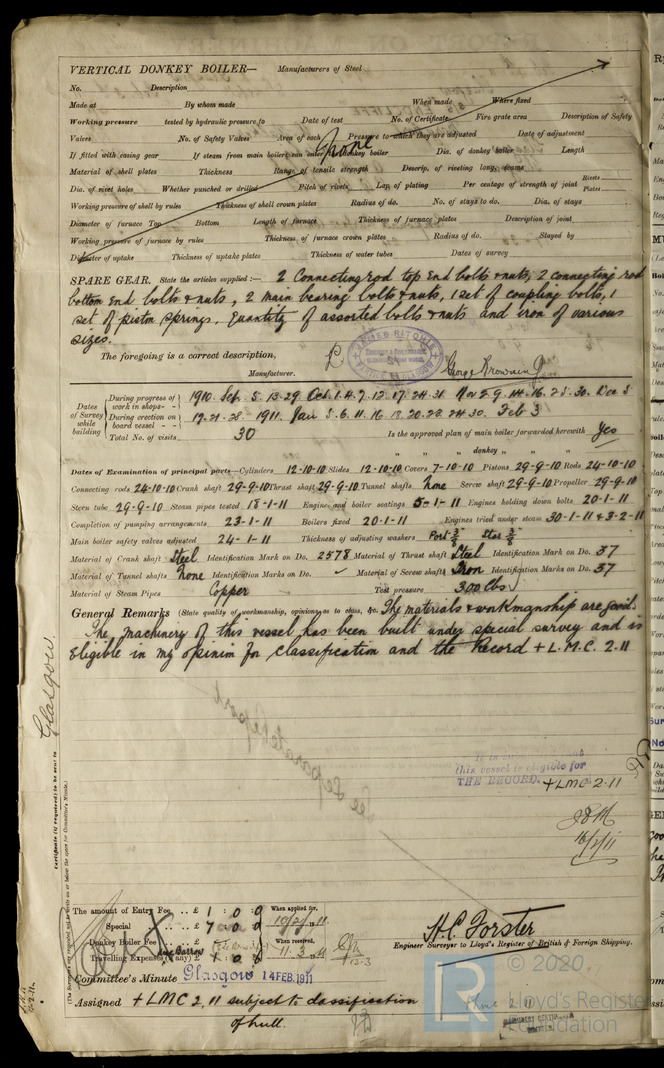 VERTICAL DONKEY BOILER— Manufacturers of Steel
No. Description
Made at By whom made When made Where fixed
Working pressure tested by hydraulic pressure to Date of test No. of Certificate Fire grate area Description of Safety
Valves No. of Safety Valves Area of each Pressure to which they are adjusted Date of adjustment
If fitted with casing gear If steam from main boilers can enter donkey boiler Dia. of donkey boiler Length
None
Material of shell plates Thickness Range of tensile strength Descrip. of riveting long. seams
Dia. of rivet holes Whether punched or drilled Pitch of rivets Lap of plating Per centage of strength of joint Rivets Plates
Working pressure of shell by rules Thickness of shell crown plates Radius of do. No. of stays to do. Dia. of stays
Diameter of furnace Top Bottom Length of furnace Thickness of furnace plates Description of joint
Working pressure of furnace by rules Thickness of furnace crown plates Radius of do. Stayed by
Diameter of uptake Thickness of uptake plates Thickness of water tubes Dates of survey
SPARE GEAR. State the articles supplied:— 2 Connecting rod top end bolts & nuts, 2 connecting rod
bottom end bolts & nuts, 2 main bearing bolts & nuts, 1 set of coupling bolts, 1
set of piston springs, quantity of assorted bolts & nuts and iron of various
sizes.
The foregoing is a correct description,
JAMES RITCHIE
George Brown
Manufacturer.
Dates of Survey while building
During progress of work in shops - - 1910 Sep. 5. 13. 29 Oct. 1. 4. 7. 12. 17. 24. 31 Nov 2. 9. 14. 16. 25. 30. Dec 5
During erection on board vessel - - 19. 21. 28 1911 Jan 5. 6. 11. 16 18. 20. 23. 24. 30. Feb 3
Total No. of visits 30 Is the approved plan of main boiler forwarded herewith Yes
" " " donkey " " "
Dates of Examination of principal parts—Cylinders 12-10-10 Slides 12-10-10 Covers 7-10-10 Pistons 29-9-10 Rods 24-10-10
Connecting rods 24-10-10 Crank shaft 29-9-10 Thrust shaft 29-9-10 Tunnel shafts None Screw shaft 29-9-10 Propeller 29-9-10
Stern tube 29-9-10 Steam pipes tested 18-1-11 Engine and boiler seatings 5-1-11 Engines holding down bolts 20-1-11
Completion of pumping arrangements 23-1-11 Boilers fixed 20-1-11 Engines tried under steam 30-1-11 & 3-2-11
Main boiler safety valves adjusted 24-1-11 Thickness of adjusting washers Port 3/8 Star 3/8
Material of Crank shaft Steel Identification Mark on Do. 2578 Material of Thrust shaft Steel Identification Mark on Do. 37
Material of Tunnel shafts None Identification Marks on Do. ✓ Material of Screw shafts Iron Identification Marks on Do. 37
Material of Steam Pipes Copper Test pressure 300 lbs
General Remarks (State quality of workmanship, opinions as to class, &c. The materials & workmanship are good.
The machinery of this vessel has been built under special survey and is
eligible in my opinion for classification and the Record + L.M.C. 2.11
See Separate Report
this vessel is eligible for
THE RECORD. + LMC 2.11
16/2/11
Glasgow.
Certificate (if required) to be sent to
The amount of Entry Fee .. £ 1 : 0 : 0 When applied for,
Special .. £ 7 : 0 : 0 10/2/11
Donkey Boiler Fee .. £ When received,
Travelling Expenses (if any) £ 1 : 0 : 0 11.3.11
H.C. Forster
Engineer Surveyor to Lloyd's Register of British & Foreign Shipping.
Committee's Minute Glasgow 14 FEB. 1911
Assigned + LMC 2.11 subject to classification
of hull.
LR
© 2020
Lloyd's Register
Foundation